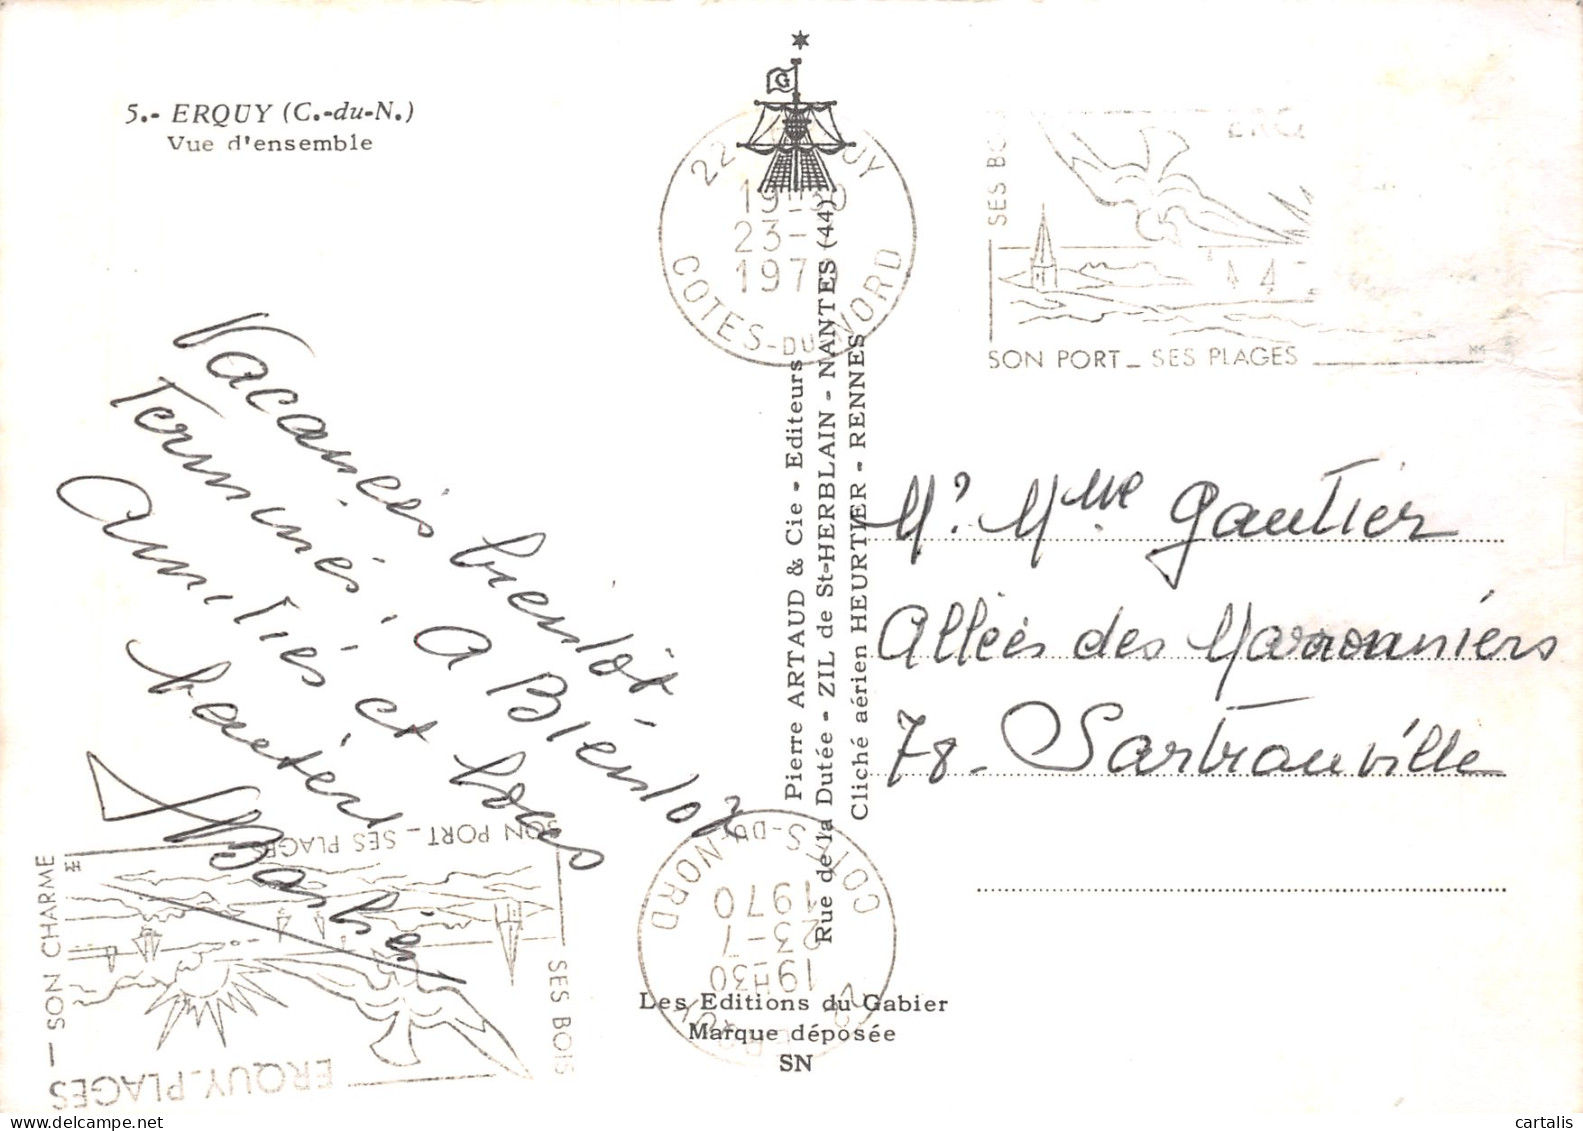 5.- ERQUY (C.-du-N.)
Vue d'ensemble
G
22 ERQUY
19H30
23-7
1970
COTES-DU-NORD
SES BOIS
SON PORT _ SES PLAGES
Vacances bientôt
Terminés. A Bientôt
Amitiés et bons
baisers
Pierre ARTAUD & Cie - Editeurs
Rue de la Dutée - ZIL de St-HERBLAIN - NANTES (44)
Cliché aérien HEURTIER - RENNES
Mr Mme Gautier
Allées des Marronniers
78 - Sartrouville
ERQUY_PLAGES _ SON CHARME
SON PORT _ SES PLAGES
SES BOIS
22 ERQUY
19H30
23-7
1970
COTES-DU-NORD
Les Editions du Gabier
Marque déposée
SN
cartalis